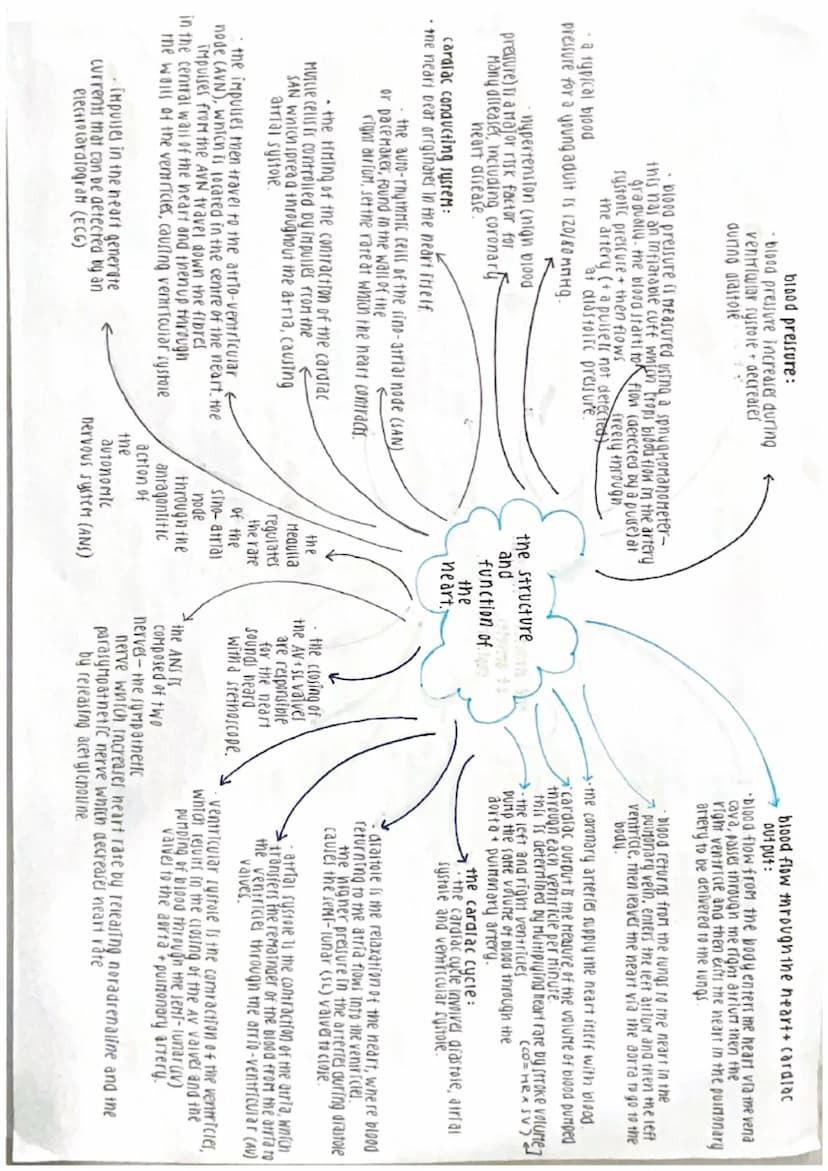 the structure
and
function of
the
heart.
blood pressure:
· blood pressure increases during
ventricular systole + decreases
during diastole
· blood pressure is measured using a sphygmomanometer—
this has an inflatable cuff which stops blood flow in the artery
gradually. the blood starts to flow (detected by a pulse) at
systolic pressure + then flows freely through
the artery (+ a pulse is not detected)
at diastolic pressure.
· a typical blood
pressure for a young adult is 120/80 mmHg.
· hypertension (high blood
pressure) is a major risk factor for
many diseases, including coronary
heart disease.
cardiac conducting system:
· the heart beat originates in the heart itself.
· the auto-rhythmic cells of the sino-atrial node (SAN)
or pacemaker, found in the wall of the
right atrium, set the rate at which the heart contracts.
· the timing of the contraction of the cardiac
muscle cells is controlled by impulses from the
SAN which spread throughout the atria, causing
atrial systole.
· the impulses then travel to the atrio-ventricular
node (AVN), which is located in the centre of the heart. the
impulses from the AVN travel down the fibres
in the central wall of the heart and then up through
the walls of the ventricles, causing ventricular systole
· impulses in the heart generate
currents that can be detected by an
electrocardiogram (ECG)
the
medulla
regulates
the rate
of the
sino-atrial
node
through the
antagonistic
action of
the
autonomic
nervous system (ANS)
the ANS is
composed of two
nerves— the sympathetic
nerve which increases heart rate by releasing noradrenaline and the
parasympathetic nerve which decreases heart rate
by releasing acetylcholine
· the closing of
the AV + SL valves
are responsible
for the heart
sounds heard
with a stethoscope.
blood flow through the heart + cardiac
output:
· blood flow from the body enters the heart via the vena
cava, passes through the right atrium then the
right ventricle and then exits the heart in the pulmonary
artery to be delivered to the lungs
· blood returns from the lungs to the heart in the
pulmonary vein, enters the left atrium and then the left
ventricle, then leaves the heart via the aorta to go to the
body.
· the coronary arteries supply the heart itself with blood.
· cardiac output is the measure of the volume of blood pumped
through each ventricle per minute.
this is determined by multiplying heart rate by stroke volume
(CO = HR x SV)
· the left and right ventricles
pump the same volume of blood through the
aorta + pulmonary artery.
the cardiac cycle:
· the cardiac cycle involves diastole, atrial
systole and ventricular systole.
· diastole is the relaxation of the heart, where blood
returning to the atria flows into the ventricles.
the higher pressure in the arteries during diastole
causes the semi-lunar (SL) valves to close.
· atrial systole is the contraction of the atria, which
transfers the remainder of the blood from the atria to
the ventricles through the atrio-ventricular (AV)
valves.
· ventricular systole is the contraction of the ventricles,
which results in the closing of the AV valves and the
pumping of blood through the semi-lunar (SL)
valves to the aorta + pulmonary artery.